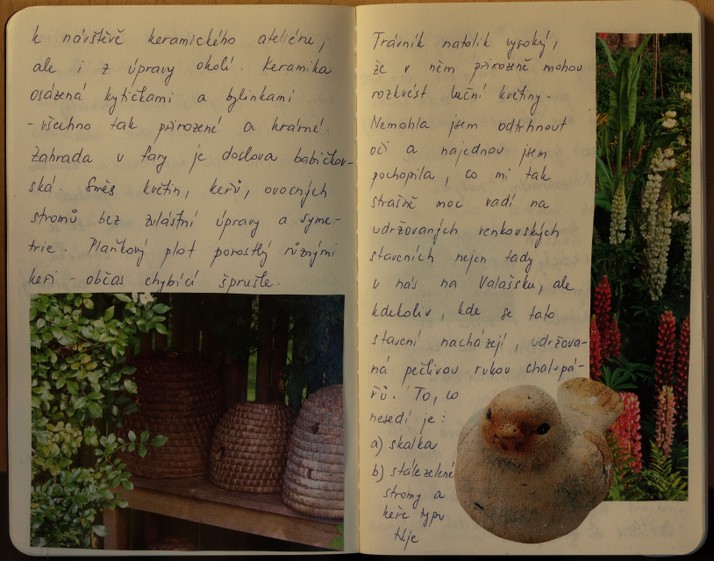 k návštěvě keramického ateliéru,
ale i z úpravy okolí. Keramika
osázená kytičkami a bylinkami
- všechno tak přirozené a krásné.
Zahrada u fary je doslova babičkov-
ská. Směs květin, keřů, ovocných
stromů bez zvláštní úpravy a syme-
trie. Plaňkový plot porostlý různými
keři - občas chybící šprusle.
Trávník natolik vysoký,
že v něm přirozeně mohou
rozkvést luční květiny.
Nemohla jsem odtrhnout
oči a najednou jsem
pochopila, co mi tak
strašně moc vadí na
udržovaných venkovských
staveních nejen tady
u nás na Valašsku, ale
kdekoliv, kde se tato
stavení nacházejí, udržova-
ná pečlivou rukou chalupá-
řů. To, co
nesedí je:
a) skalka
b) stálezelené
stromy a
keře typu
túje